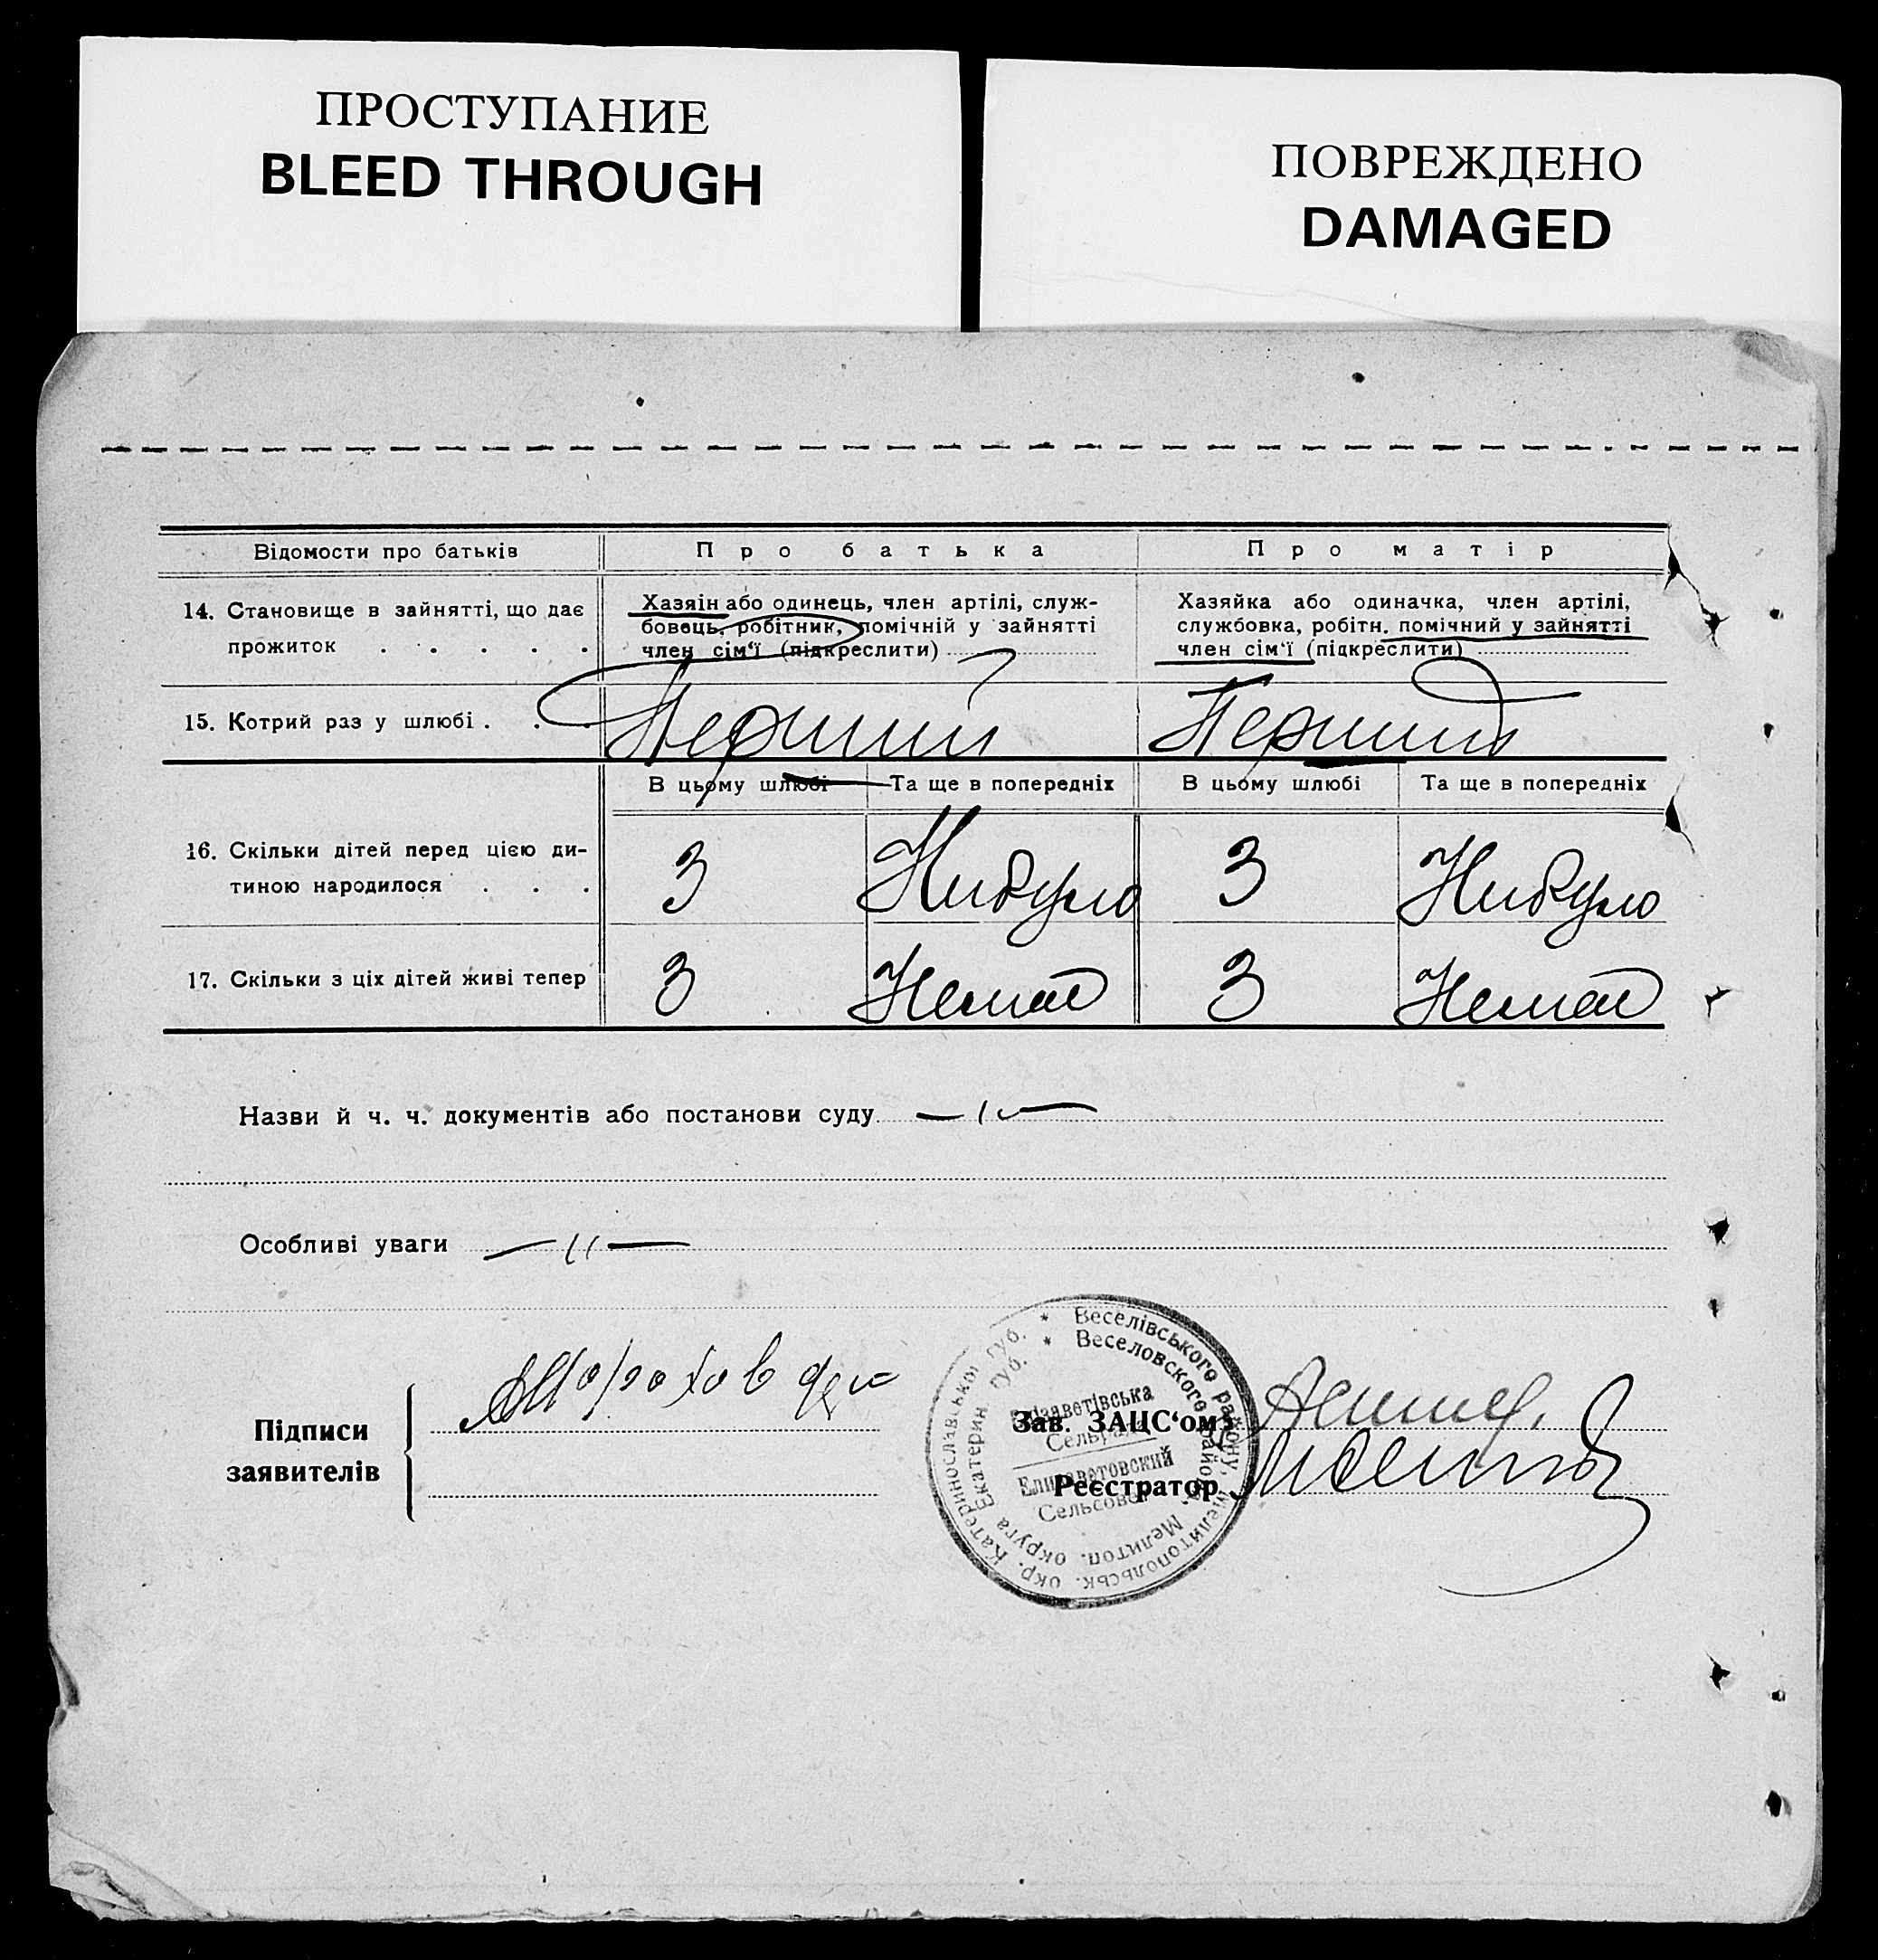 ПРОСТУПАНИЕ
BLEED THROUGH
ПОВРЕЖДЕНО
DAMAGED
Відомости про батьків
Про батька
Про матір
14. Становище в зайнятті, що дає
прожиток . . . . .
Хазяін або одинець, член артілі, служ-
бовець, робітник, помічній у зайнятті
член сім‘ї (підкреслити)
Хазяйка або одиначка, член артілі,
службовка, робітн. помічний у зайнятті
член сім‘ї (підкреслити)
15. Котрий раз у шлюбі . . .
Перший
Перший
В цьому шлюбі
Та ще в попередніх
В цьому шлюбі
Та ще в попередніх
16. Скільки дітей перед цією ди-
тиною народилося . . .
3
Нибуло
3
Нибуло
17. Скільки з ціх дітей живі тепер
3
Немає
3
Немає
Назви й ч. ч. документів або постанови суду
Особливі уваги —11—
Підписи
заявителів
Зав. ЗАЦС‘ом
Реєстратор
* Веселівського району, Мелитопольськ. окр. Катеринославської губ.
* Веселовского района, Мелитоп. округа Екатерин губ.
Єлізаветівська
Сельрада
Елизаветовский
Сельсовет